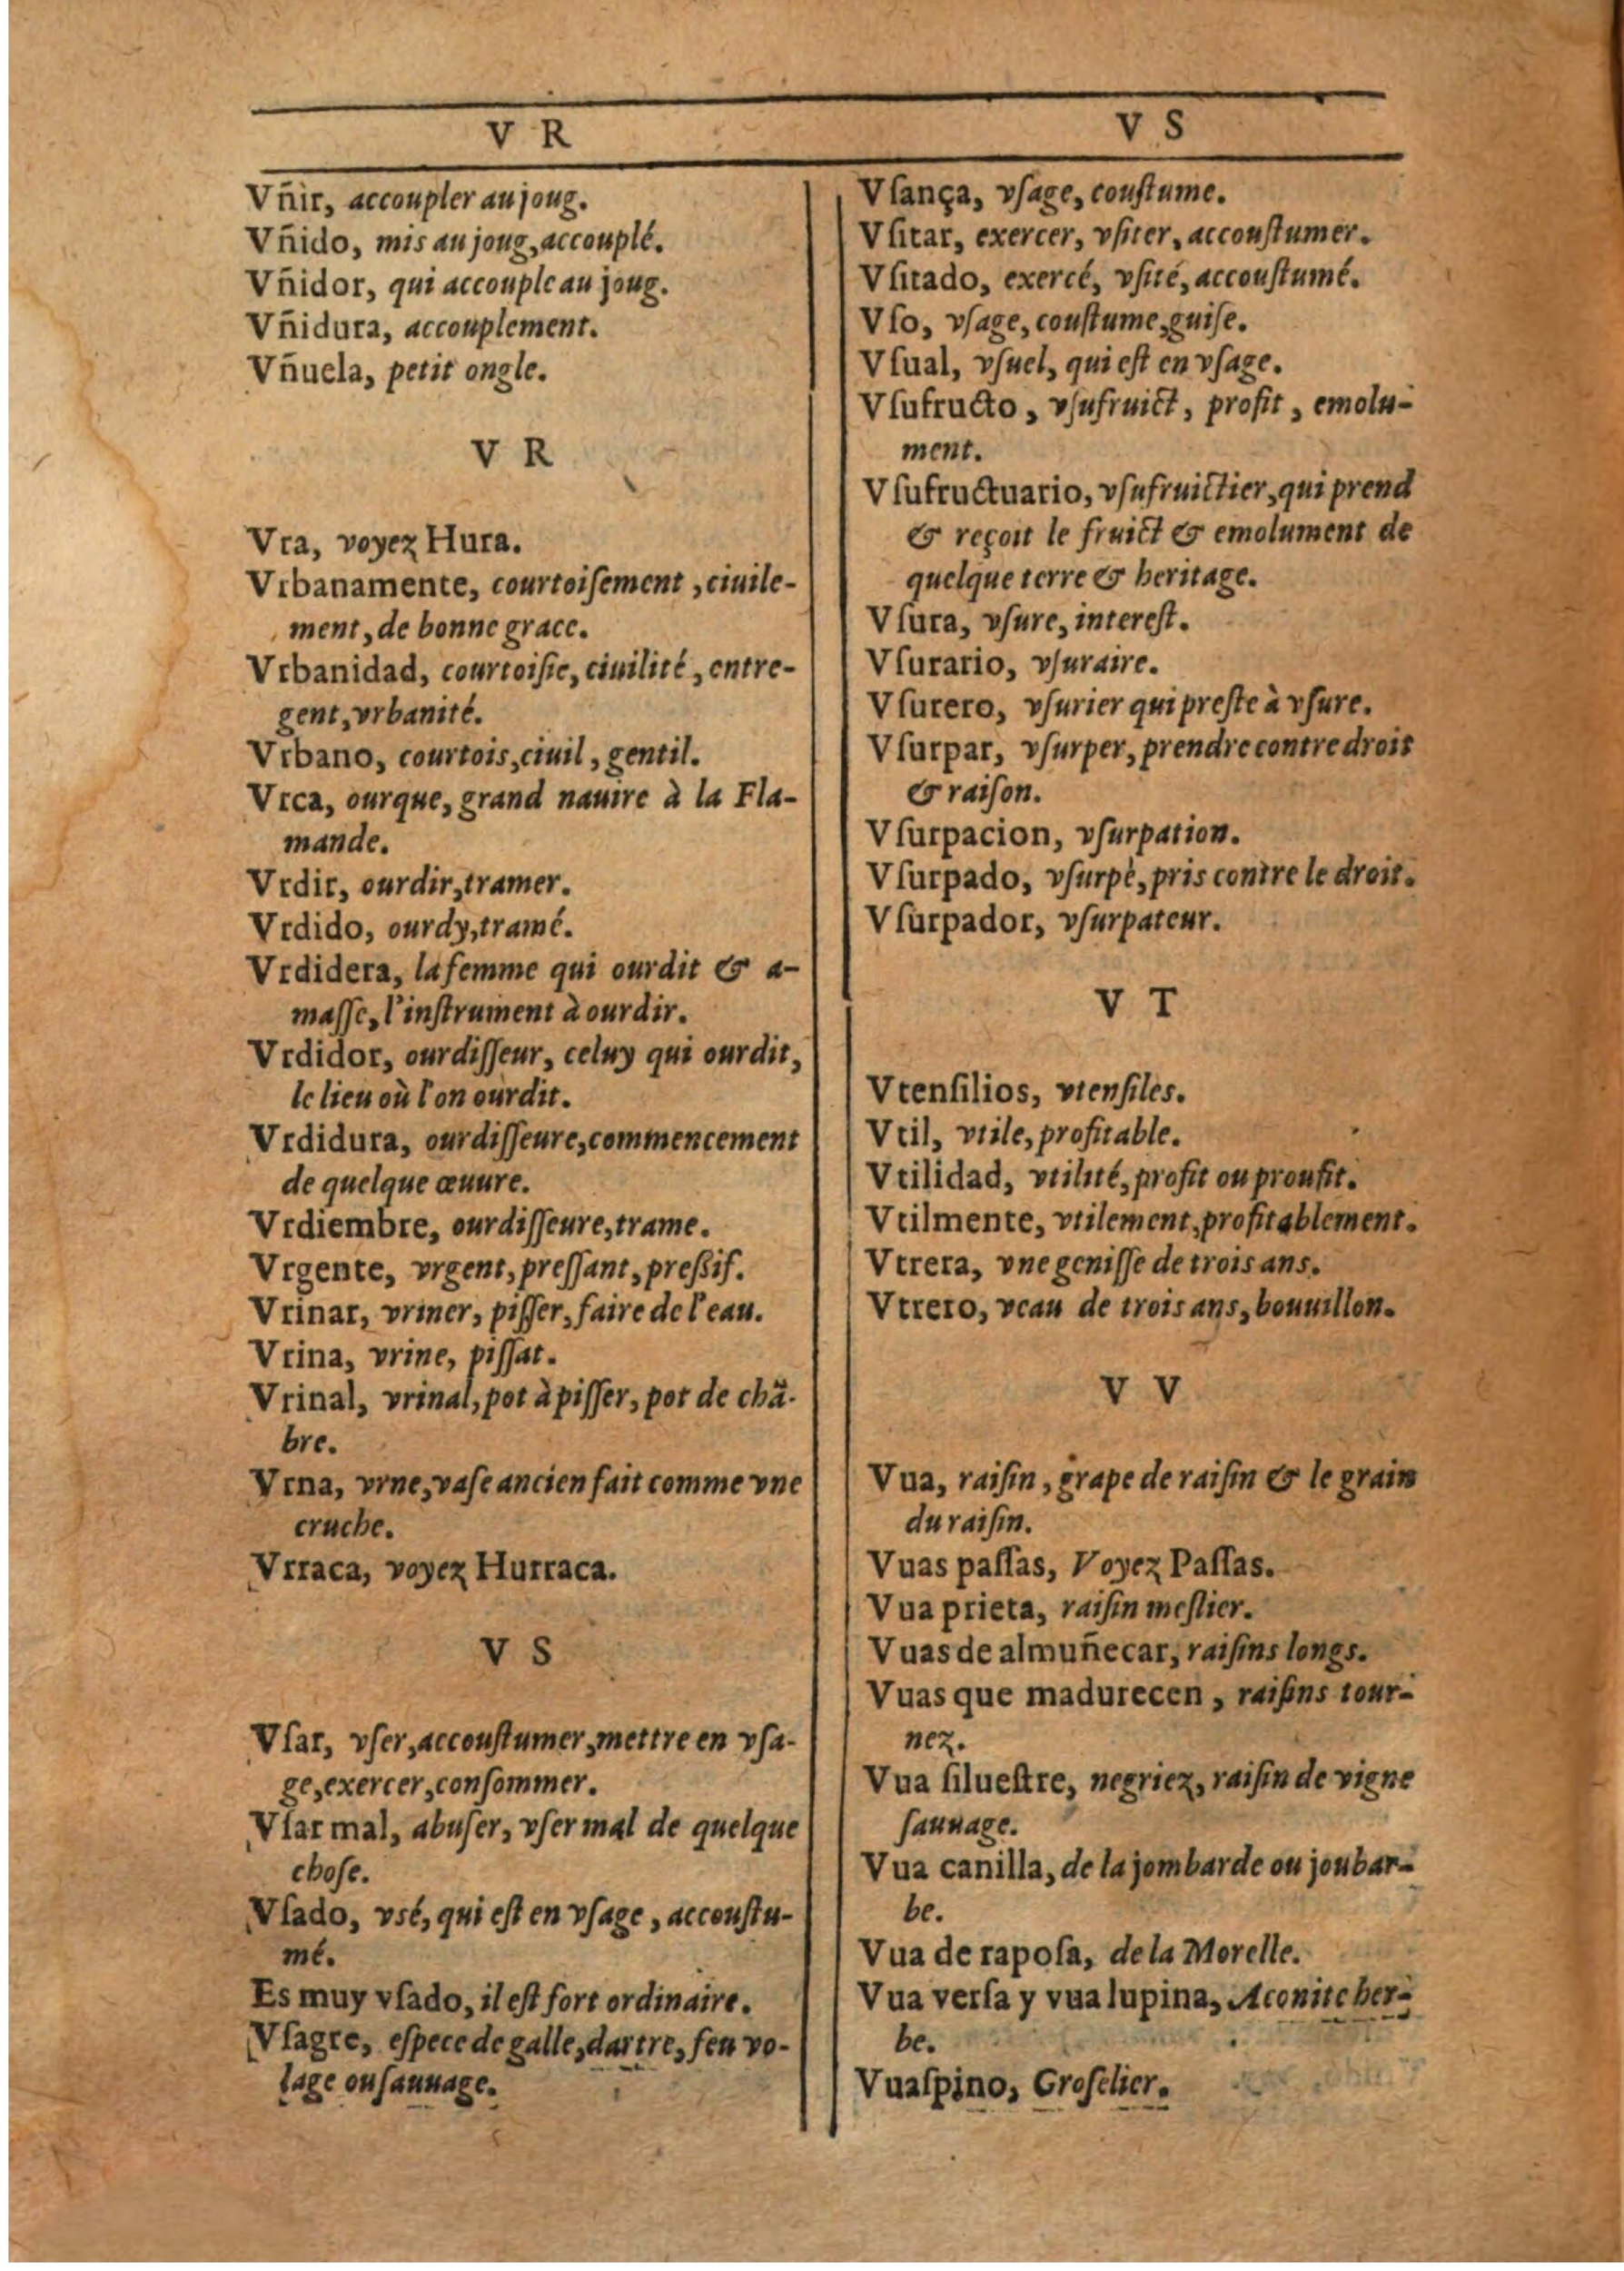 V R
Vñir, accoupler au joug.
Vñido, mis au joug, accouplé.
Vñidor, qui accouple au joug.
Vñidura, accouplement.
Vñuela, petit ongle.
V R
Vra, voyez Hura.
Vrbanamente, courtoiſement, ciuile-
ment, de bonne grace.
Vrbanidad, courtoiſie, ciuilité, entre-
gent, vrbanité.
Vrbano, courtois, ciuil, gentil.
Vrca, ourque, grand nauire à la Fla-
mande.
Vrdir, ourdir, tramer.
Vrdido, ourdy, tramé.
Vrdidera, la femme qui ourdit & a-
maſſe, l'inſtrument à ourdir.
Vrdidor, ourdiſſeur, celuy qui ourdit,
le lieu où l'on ourdit.
Vrdidura, ourdiſſeure, commencement
de quelque œuure.
Vrdiembre, ourdiſſeure, trame.
Vrgente, vrgent, preſſant, preßif.
Vrinar, vriner, piſſer, faire de l'eau.
Vrina, vrine, piſſat.
Vrinal, vrinal, pot à piſſer, pot de chã-
bre.
Vrna, vrne, vaſe ancien fait comme vne
cruche.
Vrraca, voyez Hurraca.
V S
Vſar, vſer, accouſtumer, mettre en vſa-
ge, exercer, conſommer.
Vſar mal, abuſer, vſer mal de quelque
choſe.
Vſado, vsé, qui eſt en vſage, accouſtu-
mé.
Es muy vſado, il eſt fort ordinaire.
Vſagre, eſpece de galle, dartre, feu vo-
lage ou ſauuage.
V S
Vſança, vſage, couſtume.
Vſitar, exercer, vſiter, accouſtumer.
Vſitado, exercé, vſité, accouſtumé.
Vſo, vſage, couſtume, guiſe.
Vſual, vſuel, qui eſt en vſage.
Vſufructo, vſufruict, profit, emolu-
ment.
Vſufructuario, vſufruictier, qui prend
& reçoit le fruict & emolument de
quelque terre & heritage.
Vſura, vſure, intereſt.
Vſurario, vſuraire.
Vſurero, vſurier qui preſte à vſure.
Vſurpar, vſurper, prendre contre droit
& raiſon.
Vſurpacion, vſurpation.
Vſurpado, vſurpè, pris contre le droit.
Vſurpador, vſurpateur.
V T
Vtenſilios, vtenſiles.
Vtil, vtile, profitable.
Vtilidad, vtilité, profit ou proufit.
Vtilmente, vtilement, profitablement.
Vtrera, vne geniſſe de trois ans.
Vtrero, veau de trois ans, bouuillon.
V V
Vua, raiſin, grape de raiſin & le grain
du raiſin.
Vuas paſſas, Voyez Paſſas.
Vua prieta, raiſin meſlier.
Vuas de almuñecar, raiſins longs.
Vuas que madurecen, raiſins tour-
nez.
Vua ſilueſtre, negriez, raiſin de vigne
ſauuage.
Vua canilla, de la jombarde ou joubar-
be.
Vua de rapoſa, de la Morelle.
Vua verſa y vua lupina, Aconite her-
be.
Vuaſpino, Groſelier.